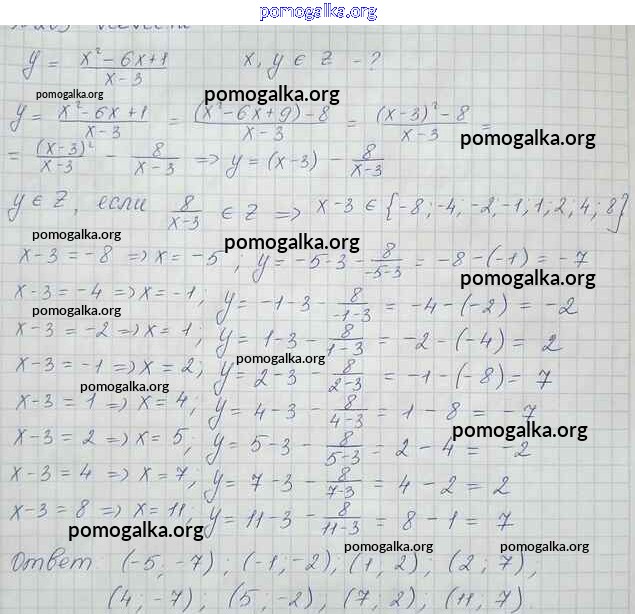 pomogalka.org
y = (x² - 6x + 1)/(x - 3)   x, y ∈ Z - ?
pomogalka.org
pomogalka.org
y = (x² - 6x + 1)/(x - 3) = ((x² - 6x + 9) - 8)/(x - 3) = ((x - 3)² - 8)/(x - 3) =
pomogalka.org
= (x - 3)²/(x - 3) - 8/(x - 3) => y = (x - 3) - 8/(x - 3)
y ∈ Z, если 8/(x - 3) ∈ Z => x - 3 ∈ {-8; -4; -2; -1; 1; 2; 4; 8}
pomogalka.org
pomogalka.org
x - 3 = -8 => x = -5; y = -5 - 3 - 8/(-5 - 3) = -8 - (-1) = -7
pomogalka.org
x - 3 = -4 => x = -1; y = -1 - 3 - 8/(-1 - 3) = -4 - (-2) = -2
x - 3 = -2 => x = 1; y = 1 - 3 - 8/(1 - 3) = -2 - (-4) = 2
pomogalka.org
x - 3 = -1 => x = 2; y = 2 - 3 - 8/(2 - 3) = -1 - (-8) = 7
pomogalka.org
x - 3 = 1 => x = 4; y = 4 - 3 - 8/(4 - 3) = 1 - 8 = -7
pomogalka.org
x - 3 = 2 => x = 5; y = 5 - 3 - 8/(5 - 3) = 2 - 4 = -2
x - 3 = 4 => x = 7; y = 7 - 3 - 8/(7 - 3) = 4 - 2 = 2
x - 3 = 8 => x = 11; y = 11 - 3 - 8/(11 - 3) = 8 - 1 = 7
pomogalka.org
pomogalka.org
pomogalka.org
Ответ: (-5; -7); (-1; -2); (1; 2); (2; 7);
(4; -7); (5; -2); (7; 2); (11; 7)